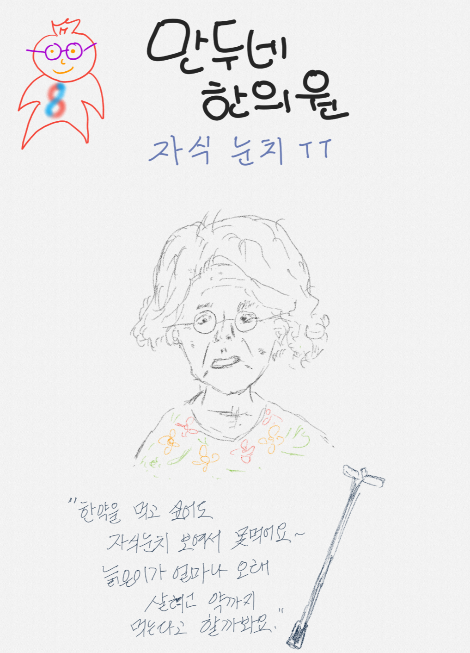 만두네
한의원
자식 눈치 ㅜㅜ
8
"한약을 먹고 싶어도
자식눈치 보여서 못먹어요~
늙은이가 얼마나 오래
살려고 약까지
먹는다고 할까봐요."